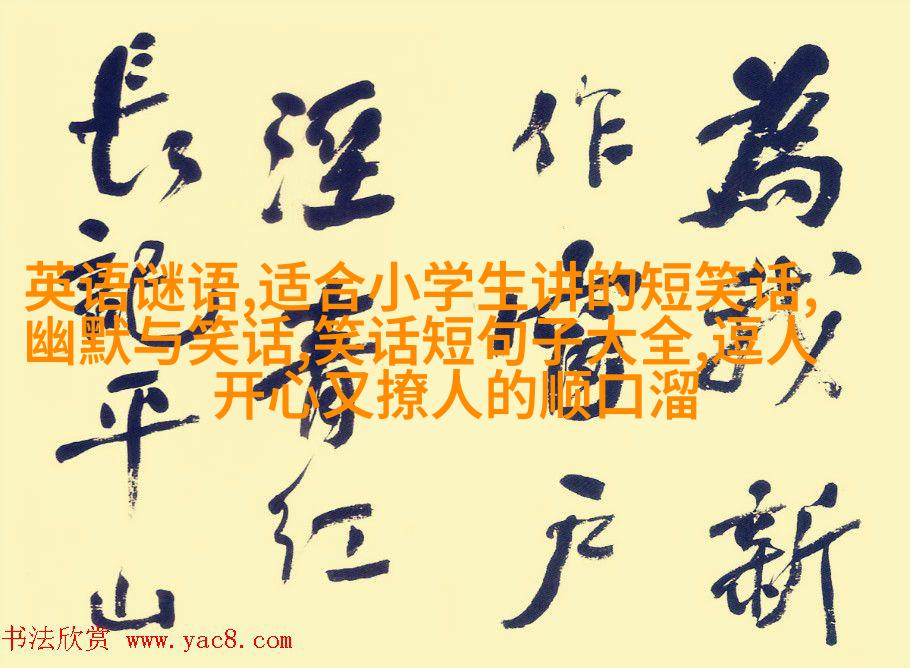 為我新
作當户
青紅
長龍平山
英语谜语,适合小学生讲的短笑话,
幽默与笑话,笑话短句子大全,逗人
开心又撩人的顺口溜
书法欣赏 www.yac8.com